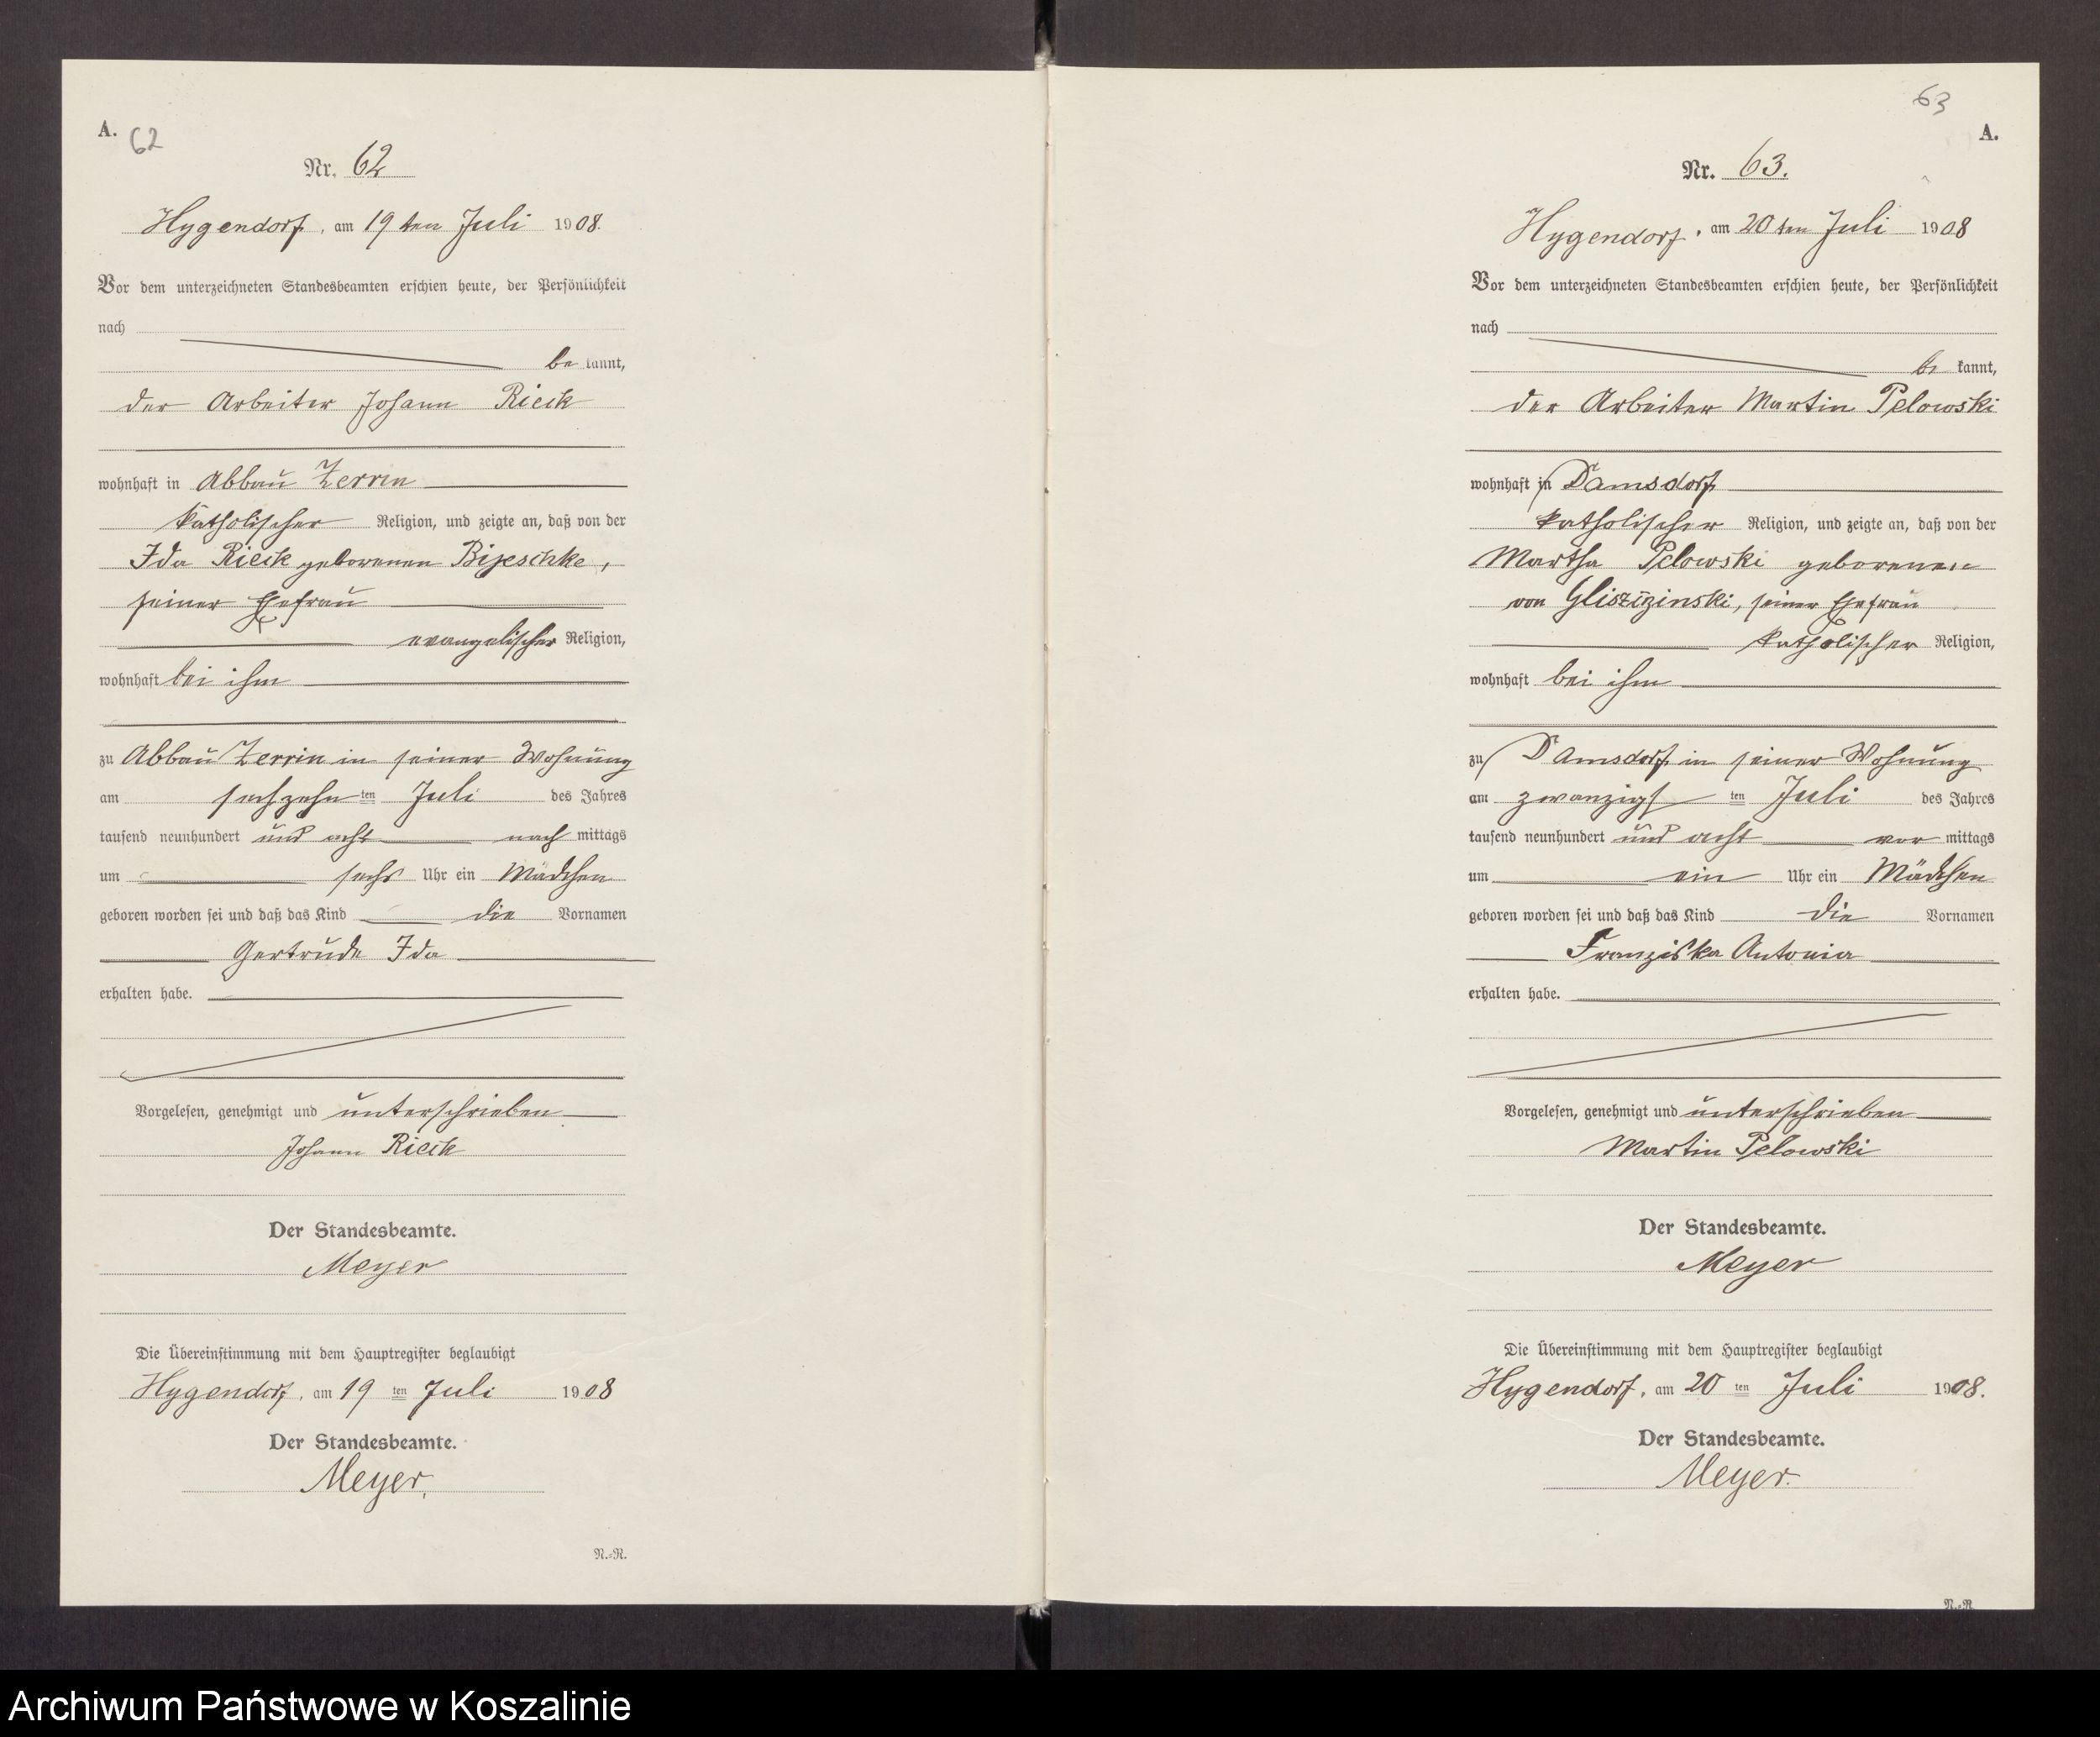 A. 62
Nr. 62
Hygendorf, am 19ten Juli 1908.
Vor dem unterzeichneten Standesbeamten erschien heute, der Persönlichkeit
nach
be kannt,
der Arbeiter Johann Rieck
wohnhaft in Abbau Zerrin
katholischer Religion, und zeigte an, daß von der
Ida Rieck geborenen
seiner Ehefrau
evangelischer Religion,
wohnhaft bei ihm
zu Abbau Zerrin in seiner Wohnung
am sechzehn ten Juli des Jahres
tausend neunhundert und acht nach mittags
um sechs Uhr ein Mädchen
geboren worden sei und daß das Kind die Vornamen
Gertrude Ida
erhalten habe.
Vorgelesen, genehmigt und unterschrieben
Johann Rieck
Der Standesbeamte.
Meyer
Die Übereinstimmung mit dem Hauptregister beglaubigt
Hygendorf, am 19 ten Juli 1908
Der Standesbeamte.
Meyer.
N.-R.
63
A.
Nr. 63.
Hygendorf, am 20ten Juli 1908
Vor dem unterzeichneten Standesbeamten erschien heute, der Persönlichkeit
nach
be kannt,
der Arbeiter Martin Pelowski
wohnhaft in Damsdorf
katholischer Religion, und zeigte an, daß von der
Martha Pelowski geborenen
von Gliszczinski, seiner Ehefrau
katholischer Religion,
wohnhaft bei ihm
zu Damsdorf in seiner Wohnung
am zwanzigs ten Juli des Jahres
tausend neunhundert und acht vor mittags
um ein Uhr ein Mädchen
geboren worden sei und daß das Kind die Vornamen
Franziska Antonia
erhalten habe.
Vorgelesen, genehmigt und unterschrieben
Martin Pelowski
Der Standesbeamte.
Meyer
Die Übereinstimmung mit dem Hauptregister beglaubigt
Hygendorf, am 20 ten Juli 1908.
Der Standesbeamte.
Meyer.
N.-R.
Archiwum Państwowe w Koszalinie